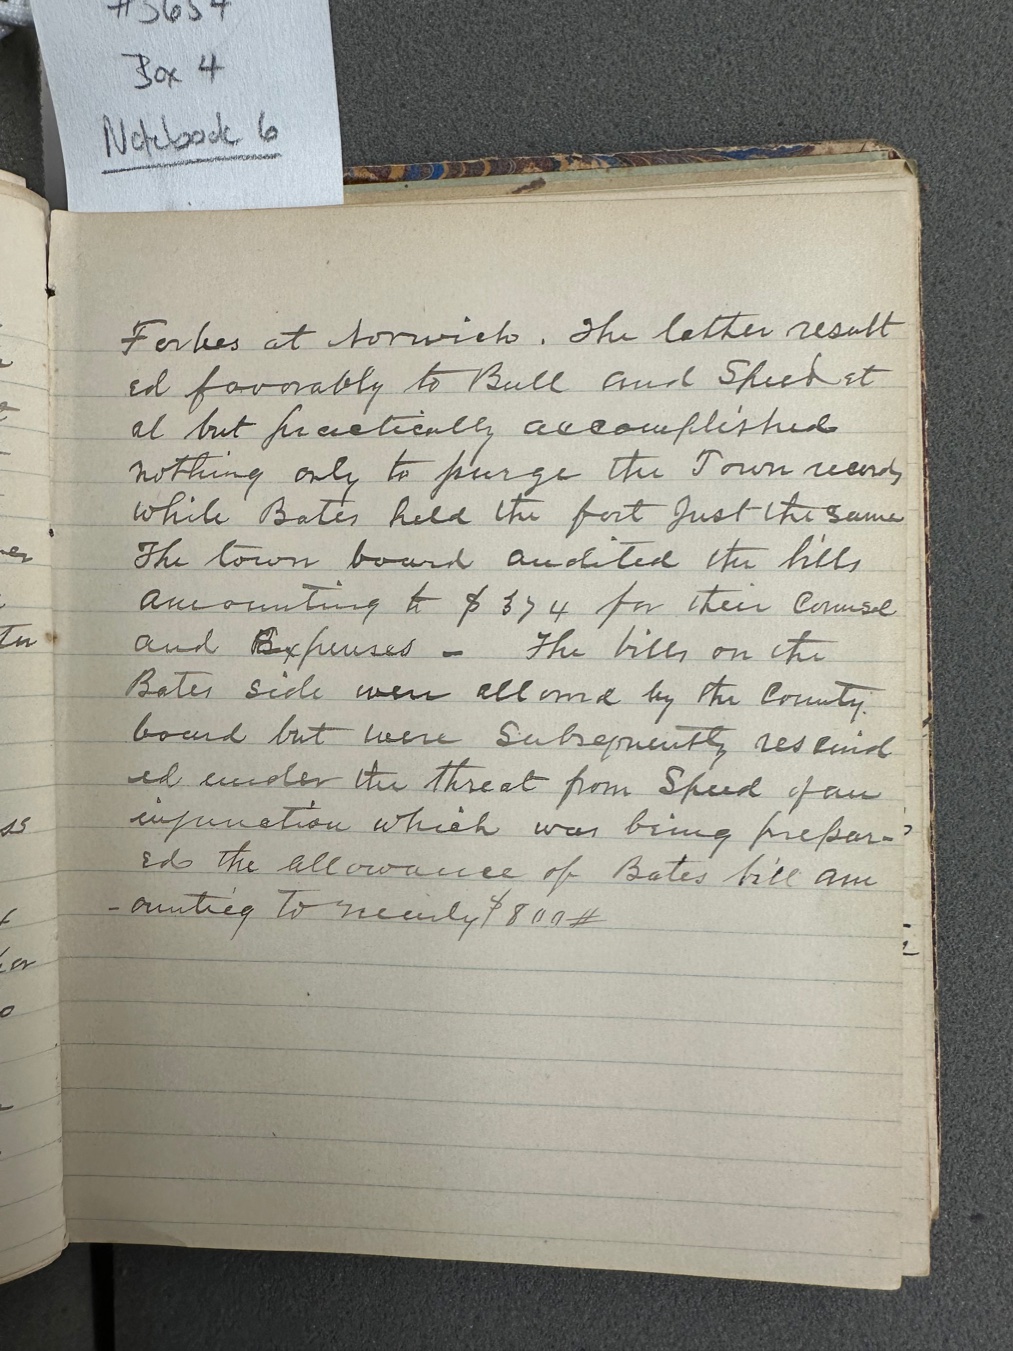 Box 4
Notebook 6
Forbes at Norwich. The latter result
ed favorably to Bull and Speed et
al but practically accomplished
nothing only to purge the Town records
while Bates held the fort Just the same
The town board audited the bills
amounting to $374 for their Counsel
and Expenses - The bills on the
Bates side were allowed by the County
board but were Subsequently rescind
ed under the threat from Speed of an
injunction which was being prepar-
ed the allowance of Bates bill am
-ounting to nearly $800